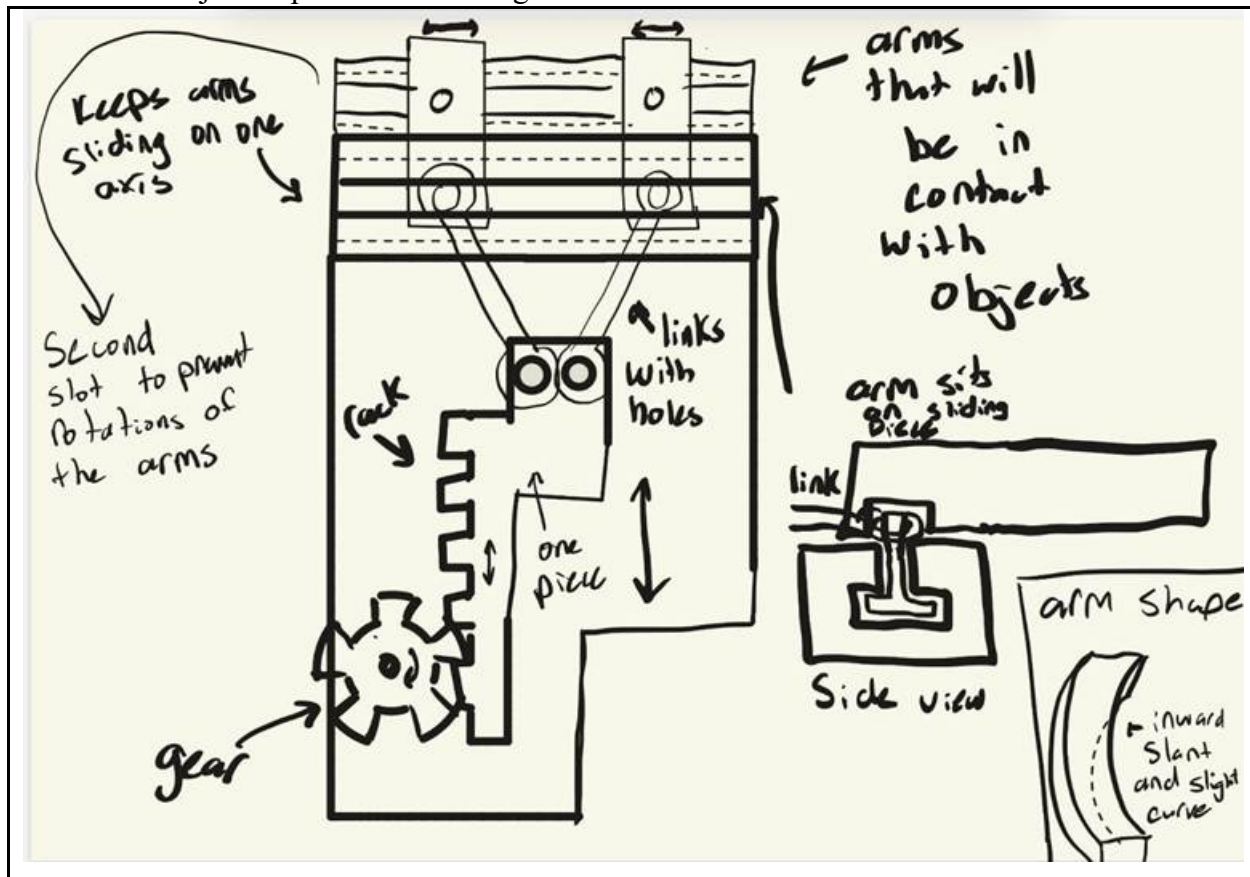 Keeps arms
sliding on one
axis
arms
that will
be in
contact
with
objects
Second
slot to prevent
rotations of
the arms
rack
links
with
holes
one
piece
gear
arm sits
on sliding
piece
link
Side view
arm shape
inward
slant
and slight
curve